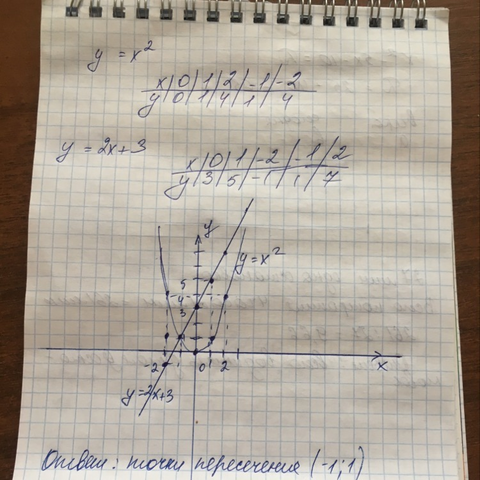 y = x²
x | 0 | 1 | 2 | -1 | -2
y | 0 | 1 | 4 | 1 | 4
y = 2x+3
x | 0 | 1 | -2 | -1 | 2
y | 3 | 5 | -1 | 1 | 7
y
y=x²
5
4
3
-2 -1 0 1 2 x
y=2x+3
Ответ: точки пересечения (-1;1)